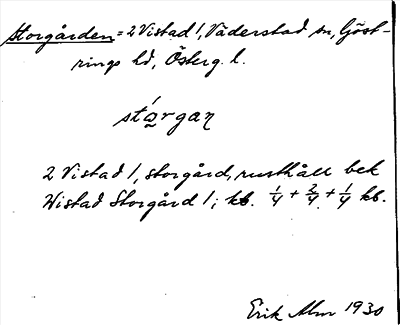 Storgården = 2 Vistad 1, Väderstad sn, Göst-
rings hd, Österg. l.
stárgan
2 Vistad 1, storgård, rusthåll bek
Wistad Storgård 1; kb. 1/4 + 2/4 + 1/4 kb.
Erik Alm 1930